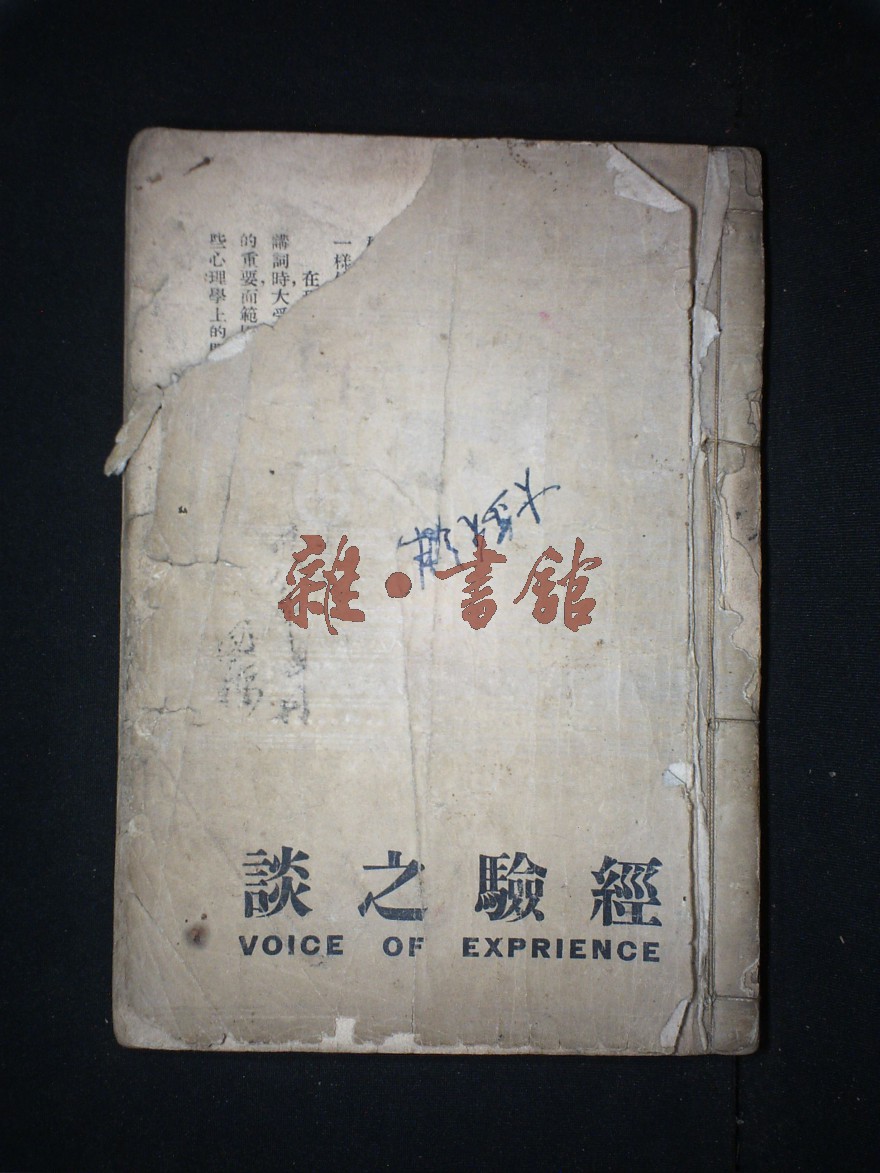 一樣
在
講詞時大受
的重要,而範
些心理學上的
雜·書館
經驗之談
VOICE OF EXPRIENCE